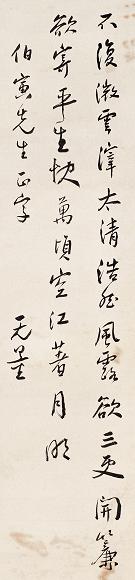 不復微雲滓太清浩然風露欲三更開簾
欲寄平生快萬頃空江著月明
伯寅先生正字
无量